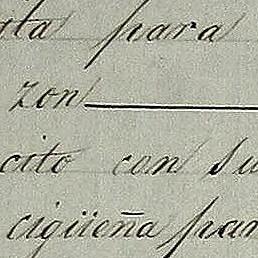 ta para
zon
cito con su
cigüeña par